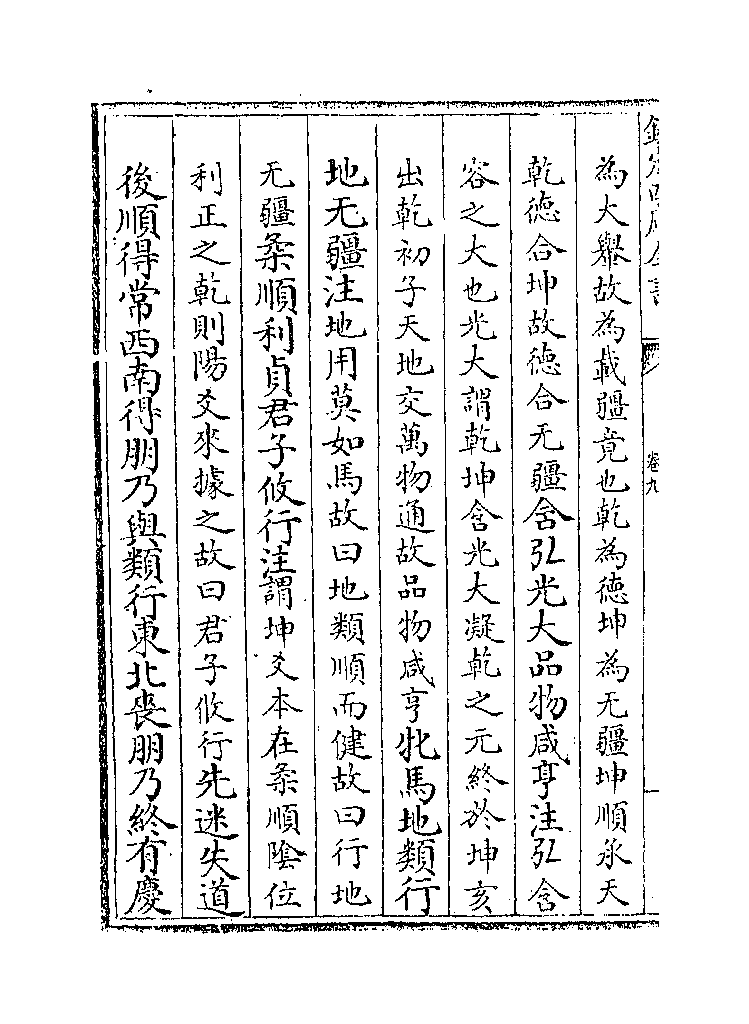 欽定四庫全書
卷九
為大轝故為載疆竟也乾為德坤為无疆坤順承天
乾德合坤故徳合无疆含弘光大品物咸亨注弘含
容之大也光大謂乾坤含光大凝乾之元終於坤亥
出乾初子天地交萬物通故品物咸亨牝馬地類行
地无疆注地用莫如馬故曰地類順而健故曰行地
无疆柔順利貞君子攸行注謂坤爻本在柔順陰位
利正之乾則陽爻來據之故曰君子攸行先迷失道
後順得常西南得朋乃與類行東北喪朋乃終有慶